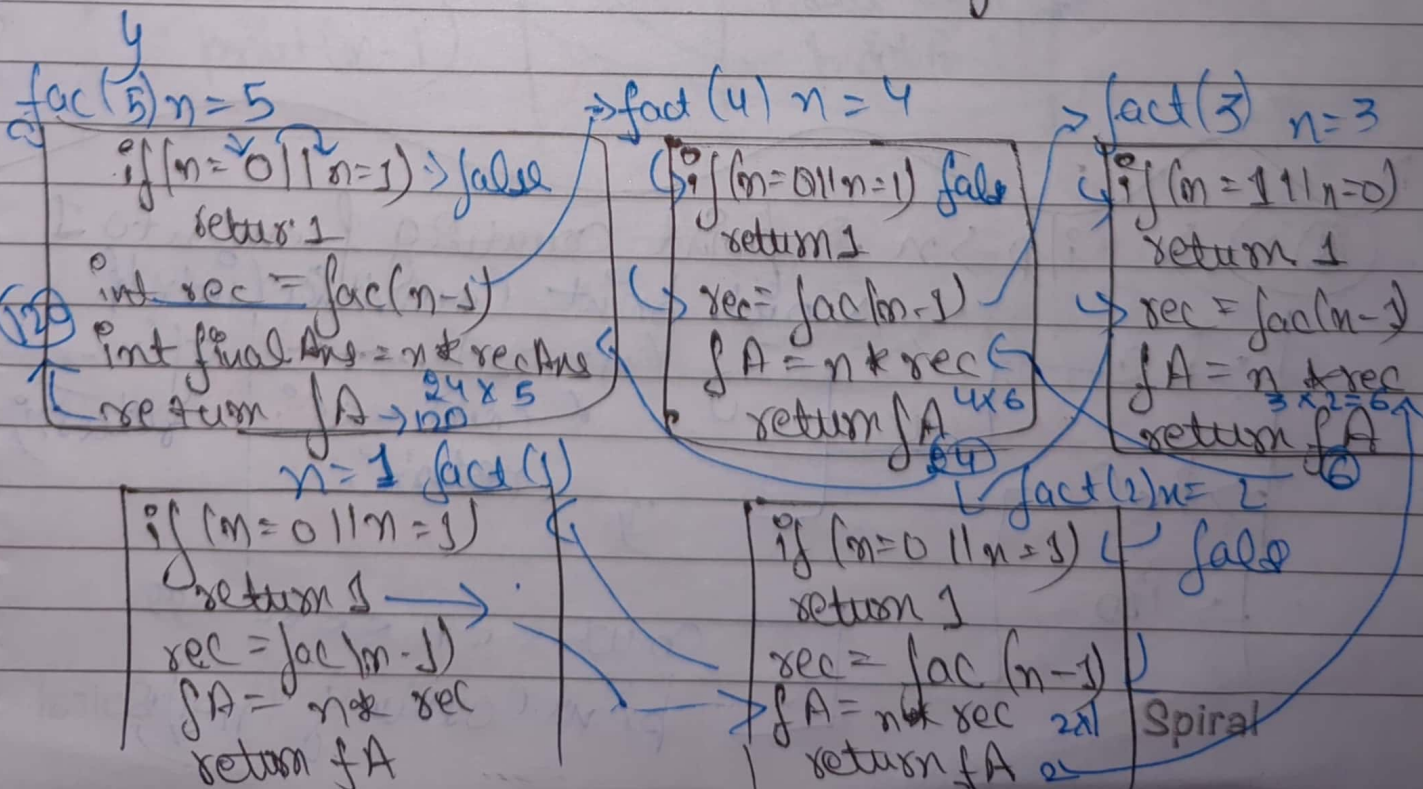 y
fac(5) n = 5
if(n = 0 || n = 1) → false
retur 1
int rec = fac(n-1)
int final Ans = n * rec Ans
24 x 5
return fA → 120
120
fact (4) n = 4
if(n = 0 || n = 1) fals
return 1
rec = fac(n-1)
fA = n * rec
4x6
return fA
24
fact(3) n = 3
if(n = 1 || n = 0)
return 1
rec = fac(n-1)
fA = n * rec
3 x 2 = 6
return fA
6
n = 1 fact(1)
if (n = 0 || n = 1)
return 1
rec = fac(n-1)
fA = n * rec
return fA
fact(2) n = 2
if (n = 0 || n = 1) false
return 1
rec = fac (n-1)
fA = n * rec 2x1
return fA
Spiral